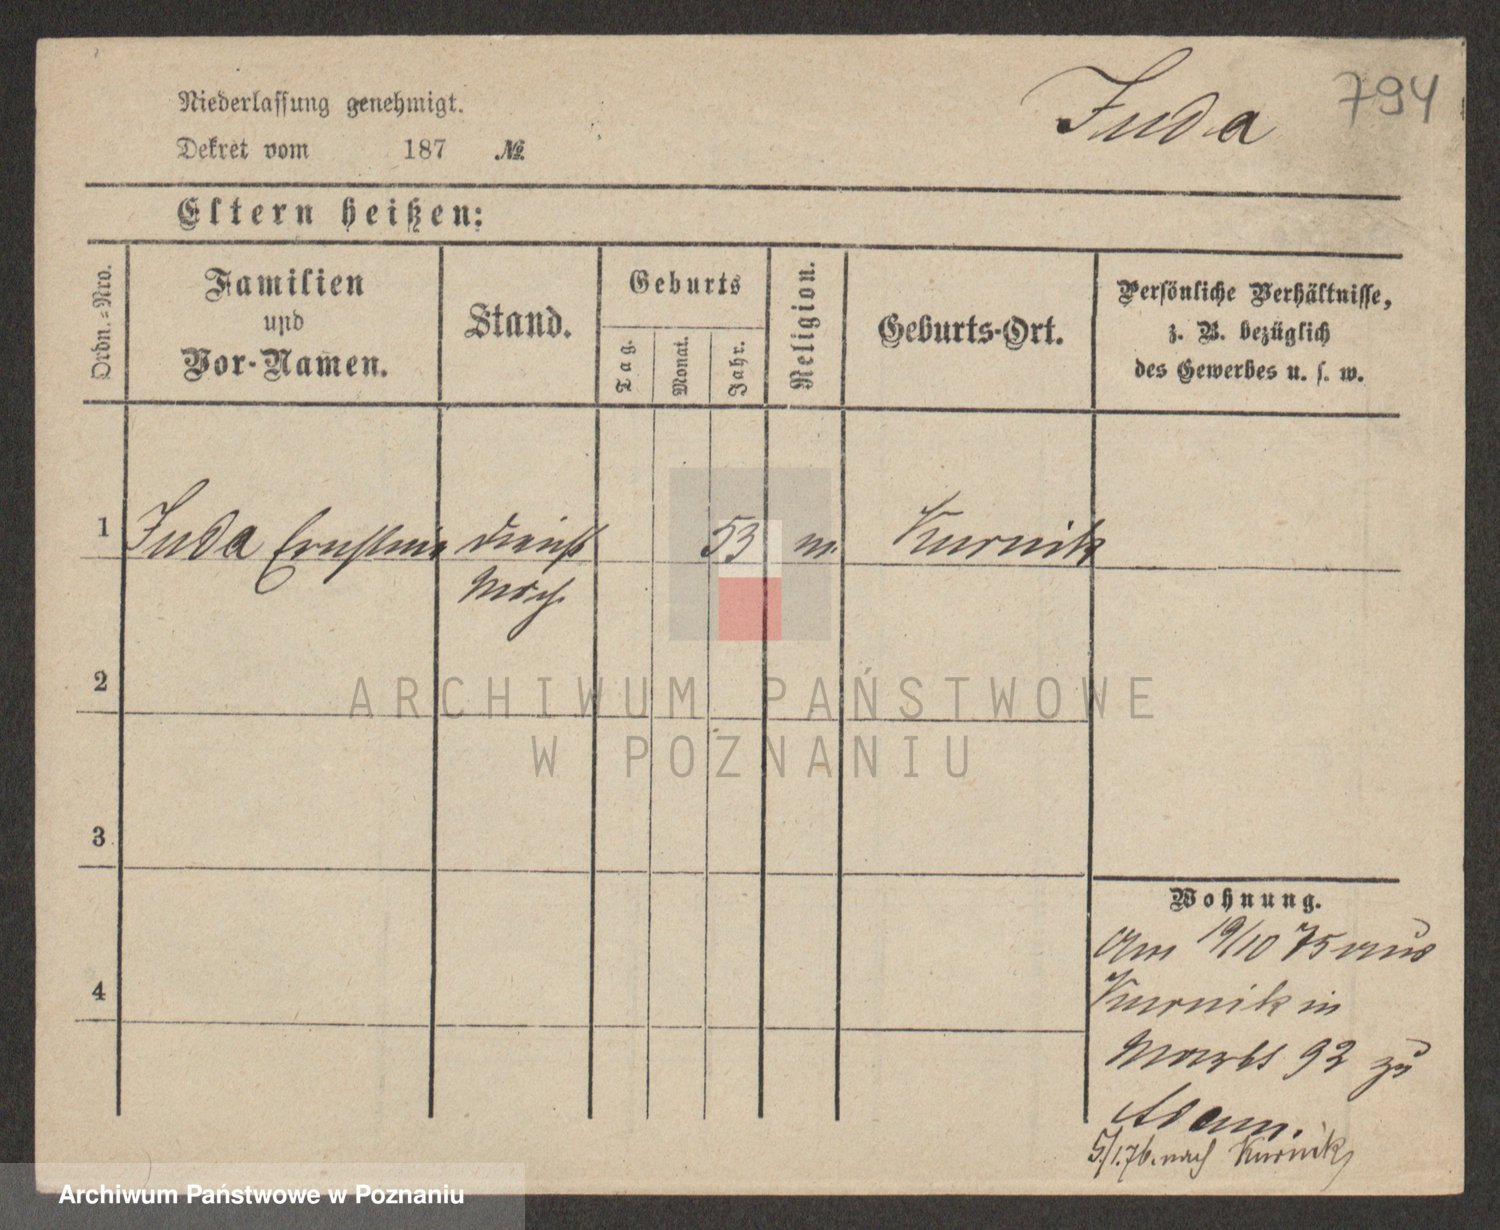 794
Juda
Niederlassung genehmigt.
Dekret vom 187 №
Eltern heißen:
Ordn.=Nro.
Familien
und
Vor-Namen.
Stand.
Geburts
Tag.
Monat.
Jahr.
Religion.
Geburts-Ort.
Persönliche Verhältnisse,
z. B. bezüglich
des Gewerbes u. s. w.
1 Juda Ernstine Dienst 53 m. Kurnik
Mdch.
2
3
4
Wohnung.
Am 19/10 75 aus
Kurnik in
Markt 92 zu
Adam.
5/1.76. nach Kurnik
ARCHIWUM PAŃSTWOWE
W POZNANIU
Archiwum Państwowe w Poznaniu